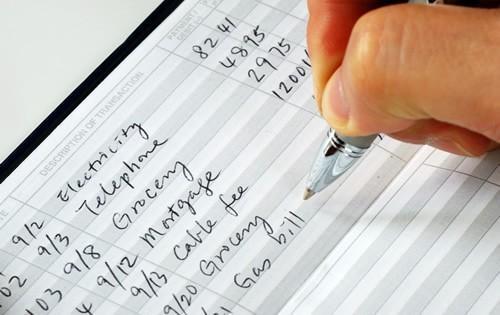 PAYMENT
DESCRIPTION OF TRANSACTION
9/2 Electricity 82 41
02 9/3 Telephone 48 95
103 9/8 Grocery 29 75
4 9/12 Mortgage 1200
9/13 Cable fee
9/20 Grocery
Gas bill